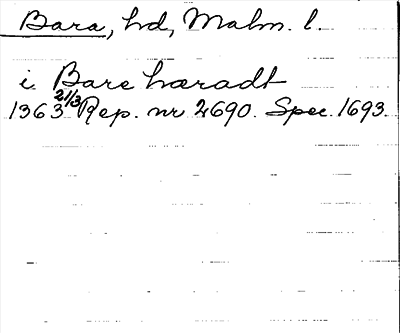 Bara, hd, Malm. l.
i Bare hæradt
1363 21/3 Rep. nr 2690. Spec. 1693.